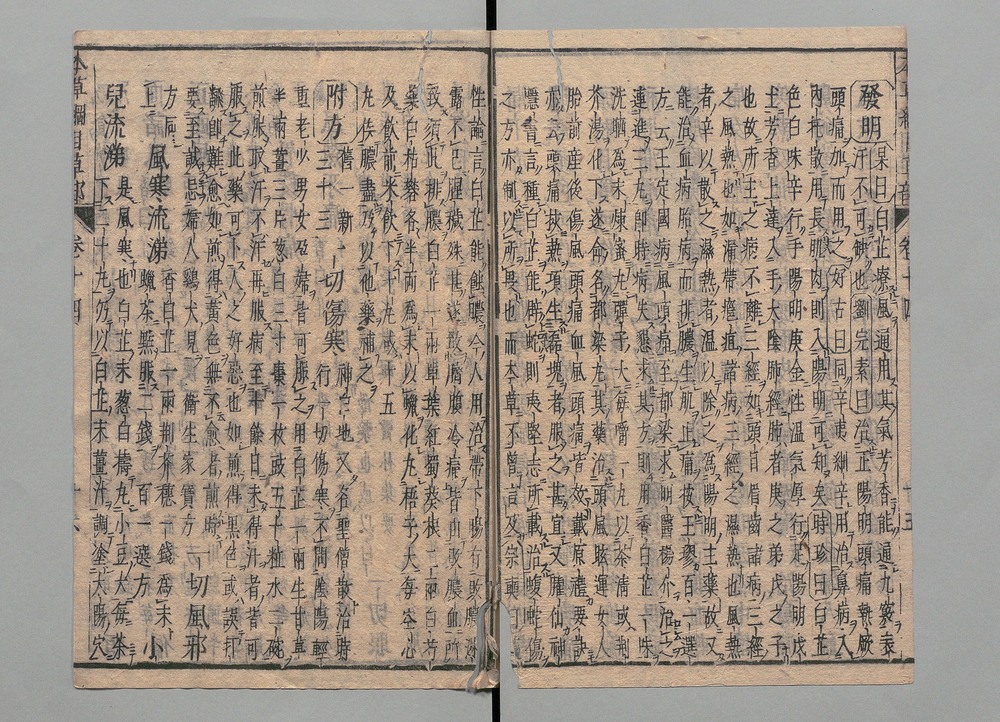 本草綱目草部 卷十四 十五
發明 杲曰白芷療風通用其氣芳香能通九竅表
汗不可缺也劉完素曰治正陽明頭痛熱厥
頭痛加而用之好古曰同辛夷細辛用治鼻病入
內托散用長肌肉則入陽明可知矣時珍曰白芷
色白味辛行手陽明庚金性溫氣厚行足陽明戊
土芳香上達入手太陰肺經肺者庚之弟戊之子
也故所主之病不離三經如頭目眉齒諸病三經
之風熱也如漏帶癰疽諸病三經之濕熱也風熱
者辛以散之濕熱者溫以除之為陽明主藥故又
能治血病胎病而排膿生肌止痛按王璆百一選
方云王定國病風頭痛至都梁求明醫楊介治之
連進三丸即時病失懇求其方則用香白芷一味
洗晒為末煉蜜丸彈子大每嚼一丸以茶清或荊
芥湯化下遂命名都梁丸其藥治頭風眩運女人
胎前產後傷風頭痛血風頭痛皆效戴原禮要訣
亦云頭痛挾熱項生磊塊者服之甚宜又臞仙神
隱書言種白芷能辟蛇則夷堅志所載治蝮蛇傷
之方亦制以所畏也而本草不曾言及宗奭曰藥
性論言白芷能蝕膿今人用治帶下腸有敗膿淋
露不已腥穢殊甚遂致臍腹冷痛皆由敗膿血所
致須此排膿白芷一兩單葉紅蜀葵根二兩白芍
藥白枯礬各半兩為末以蠟化丸梧子大每空心
及飲前米飲下十丸或十五
丸俟膿盡乃以他藥補之
附方 舊一新三十三 一切傷寒 神白散又名聖僧散治時行一切傷寒不問陰陽輕
重老少男女孕婦皆可服之用白芷一兩生甘草
半兩薑三片葱白三寸棗一枚豉五十粒水二碗
煎服取汗不汗再服病至十餘日未得汗者皆可
服之此藥可卜人之好惡也如煎得黑色或誤打
翻即難愈如煎得黃色無不愈者煎時
要至誠忌婦人雞犬見衛生家寶方 一切風邪
方同上 風寒流涕 香白芷一兩荊芥穗一錢為末蠟茶點服二錢百一選方 小
兒流涕 是風寒也白芷末葱白擣丸小豆大每茶下二十丸仍以白芷末薑汁調塗太陽穴
本草綱目草部 卷十四 十六